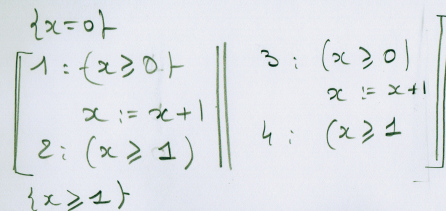 {x=0}
1: {x≥0}
x := x+1
2: (x≥1)
3: (x≥0)
x := x+1
4: (x≥1
{x≥1}